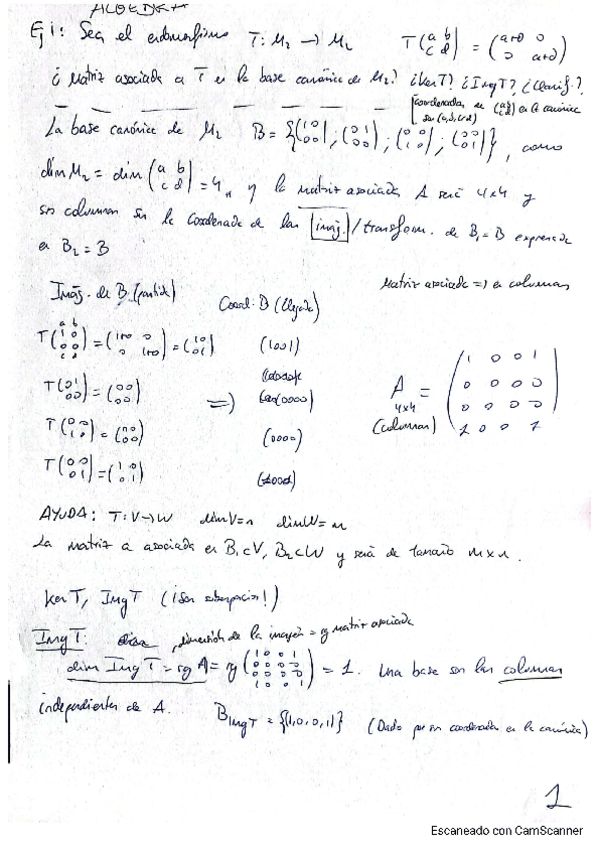 ALGEBRA
Ej 1: Sea el endomorfismo T: M₂ → M₂ T(a b c d) = (a+d 0 0 a+d)
¿Matriz asociada a T en la base canónica de M₂? ¿Ker T? ¿Img T? ¿Clasif.?
[coordenadas de (a b c d) en la canónica son (a,b,c,d)
La base canónica de M₂ B = {(1 0 0 0); (0 1 0 0); (0 0 1 0); (0 0 0 1)}, como
dim M₂ = dim (a b c d) = 4, y la matriz asociada A será 4x4 y
sus columnas son las coordenadas de las imág./transform. de B₁ = B expresadas
en B₂ = B
Matriz asociada => en columnas
Imág. de B (partida) Coord. B (llegada)
T(1 0 0 0) = (1+0 0 0 1+0) = (1 0 0 1) (1001)
T(0 1 0 0) = (0 0 0 0) => (0000)
T(0 0 1 0) = (0 0 0 0) (0000)
T(0 0 0 1) = (1 0 0 1) (1001)
A 4x4 (columnas) = (1 0 0 1 0 0 0 0 0 0 0 0 1 0 0 1)
AYUDA: T: V→W dim V = n dim W = m
La matriz a asociada en B₁⊂V, B₂⊂W y será de tamaño m x n.
Ker T, Img T (¡Son subespacios!)
Img T: dimensión de la imagen = rg matriz asociada
dim Img T = rg A = rg (1 0 0 1 0 0 0 0 0 0 0 0 1 0 0 1) = 1. Una base son las columnas
independientes de A. B Img T = {(1,0,0,1)} (Dado por sus coordenadas en la canónica)
1
Escaneado con CamScanner